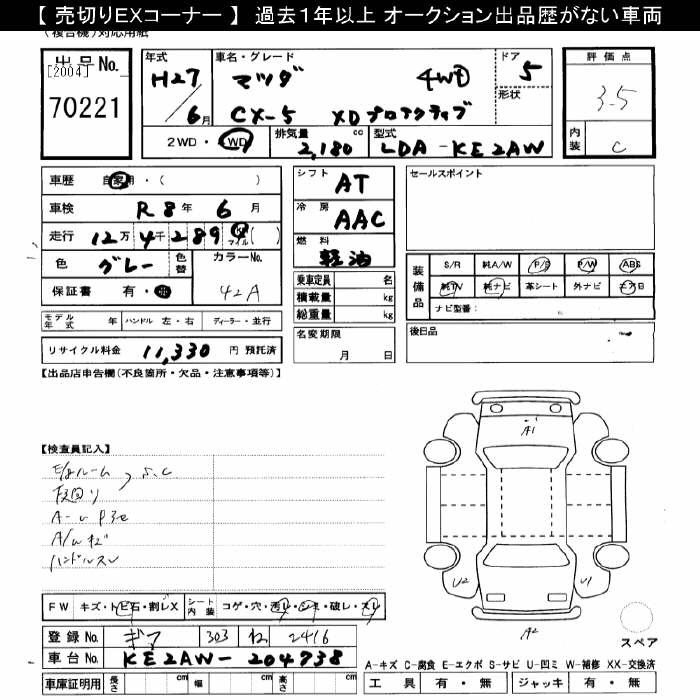 【 売切りEXコーナー 】 過去1年以上 オークション出品歴がない車両
(複合機)対応用紙
出品No.
[2004]
70221
年式
H27
6月
車名・グレード
マツダ 4WD
CX-5 XD プロアクティブ
ドア
5
形状
評価点
3.5
内装
C
2WD・4WD
排気量
2,180 cc
型式
LDA-KE2AW
車歴 自家用・( )
車検 R8年 6月
走行 12万 4千 289 マイル ( )
色 グレー 色替 カラーNo.
42A
保証書 有・無
モデル年式 年 ハンドル 左・右 ディーラー・並行
リサイクル料金 11,330 円 預託済
シフト
AT
冷房
AAC
燃料
軽油
乗車定員 名
積載量 kg
総重量 kg
名変期限
月 日
セールスポイント
装備品
S/R 純A/W P/S P/W ABS
純TV 純ナビ 革シート 外ナビ エアB
ナビ型番:
後日品
【出品店申告欄(不良箇所・欠品・注意事項等)】
【検査員記入】
ハンドルスレ
A1
U2
U1
A2
スペア
FW キズ・トビ石・割レX シート内装 コゲ・穴・汚レ・シミ・破レ・スレ
登録No. 303 ね 2416
車台No. KE2AW-204738
車庫証明用 長さ cm 幅 cm 高さ cm
A-キズ C-腐食 E-エクボ S-サビ U-凹ミ W-補修 XX-交換済
工具 有・無 ジャッキ 有・無